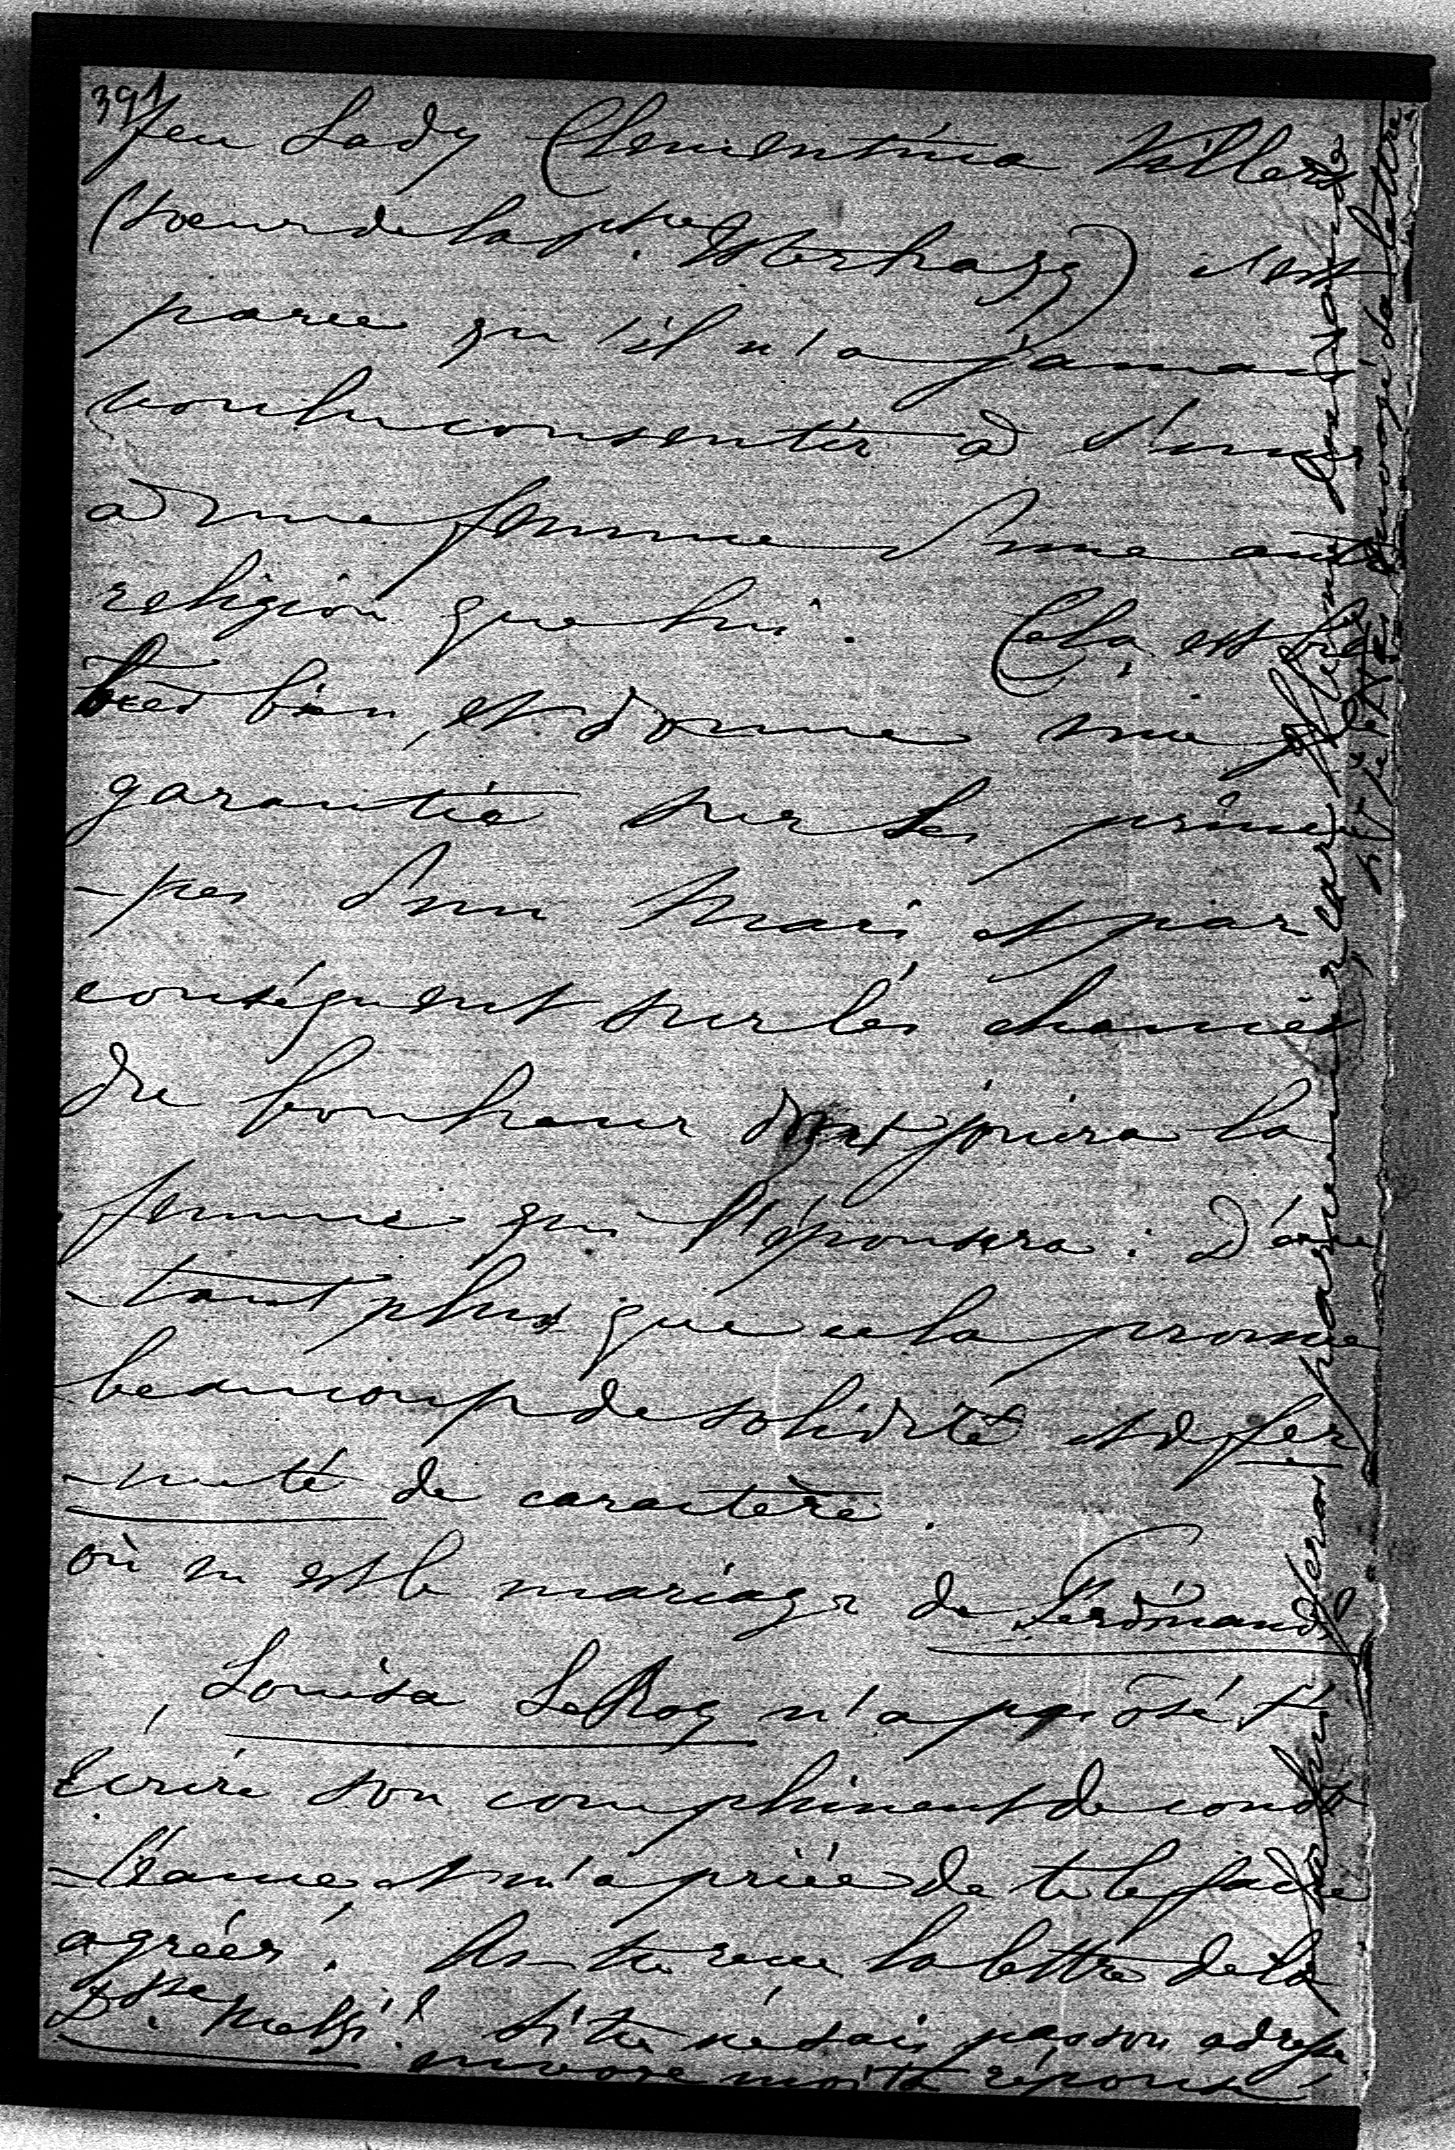 391
feu Lady Clementina Villers
(soeur de la p.sse Esterhazy) c'est
parce qu'il n'a jamais
voulu consentir à s'unir
à une femme d'une autre
religion que lui. Cela est
très bien, et donne une
garantie sur les princi
-pes d'un Mari et par
conséquent sur les chances
de bonheur dont jouira la
femme qui l'épousera. D'au
-tant plus que cela prouve
beaucoup de solidité et de fer
-meté de caractère.
où en est le mariage de Ferdinand
Louisa LeRoy n'a pas osé t'
écrire son compliment de condo
-léance, et m'a priée de te le faire
agréer. As-tu reçu la lettre de la
D.sse Melzi? Si tu ne sais pas son adresse
envoye moi ta réponse